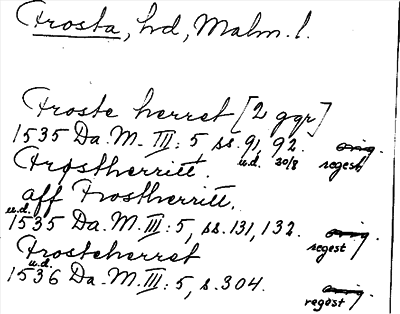 Frosta, hd, Malm. l.
Froste herret [2 ggr]
1535 Da. M. III: 5 ss. 91, 92. orig.
u.d. 30/8 regest
Frostherritt.
aff Frostherritt.
u.d.
1535 Da. M. III: 5, ss. 131, 132. orig.
regest
Frosteherret
u.d.
1536 Da. M. III: 5, s. 304. orig.
regest